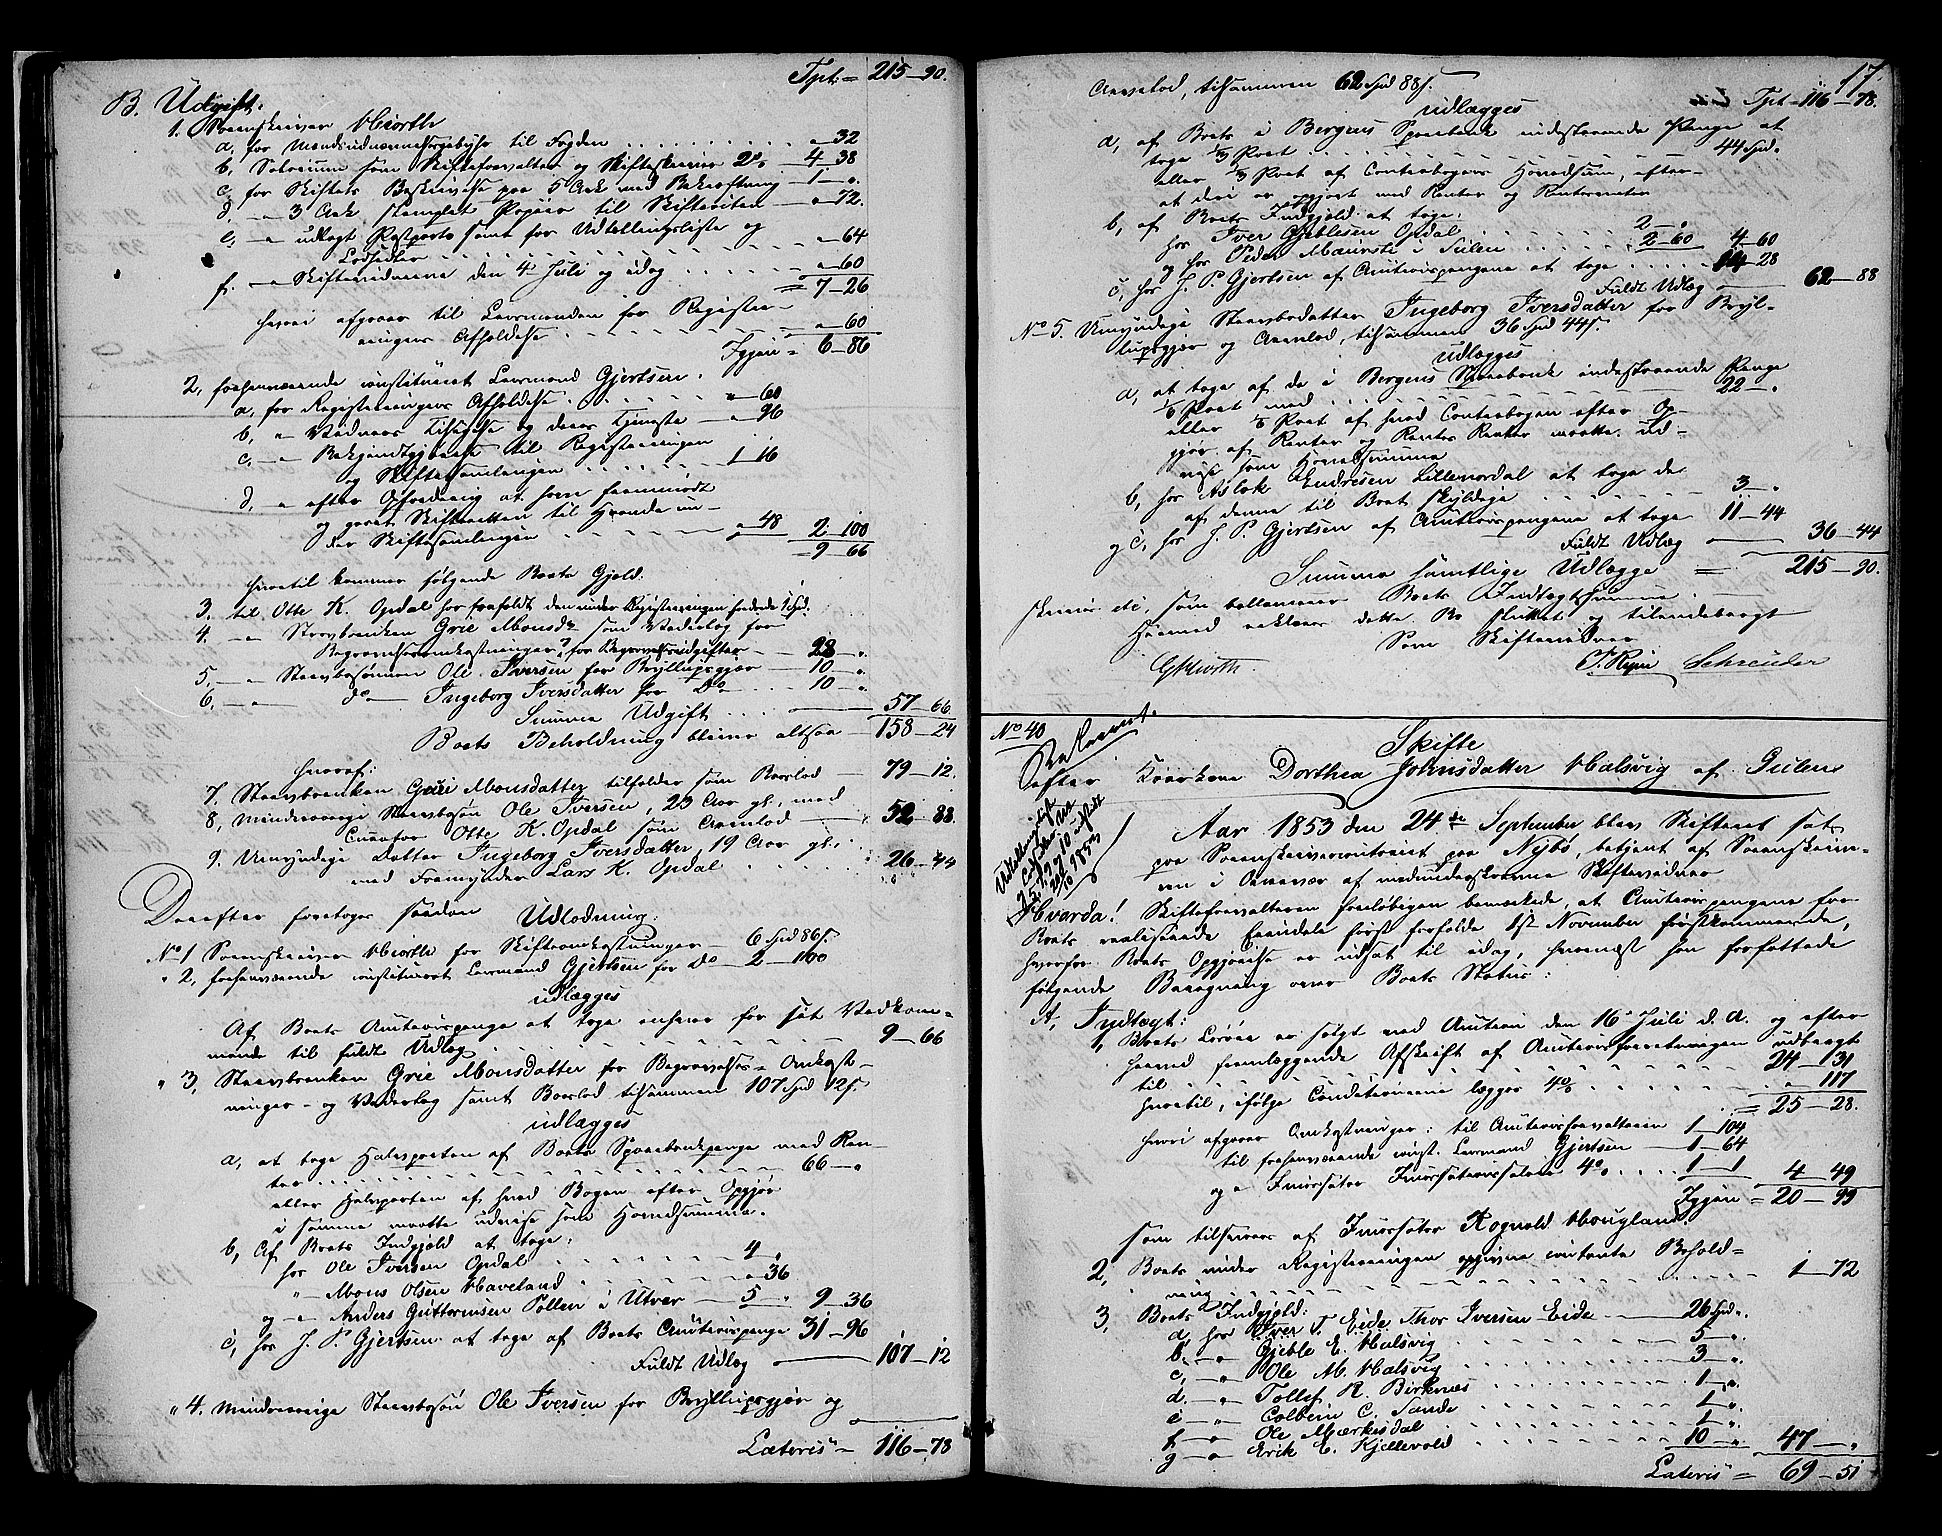 Tpt = 215–90.
B. Udgift.
1. Sorenskriver Hiorth
a, for Mandsudnævnelsesgebyhr til Fogden . . . „–32
b, Salarium som Skifteforvalter og Skifteskriver 2% – 4–38
c, for Skiftets Beskrivelse paa 5 Ark med Bekræftning – 1–„
d, –„– 3 Ark stemplet Papiir til Skifteakten – „–72.
e, –„ udlagt Postporto samt for Udtællingsliste og
Lodsedler . . . „–64
f. –„ Skiftevidnerne den 4 Juli og idag . . . „–60
= 7–26
hvori afgaaer til Lensmanden for Registre-
ringens Afholdelse . . . „–60
Igjen = 6–86
2, forhenværende constitueret Lensmand Gjertsen.
a, for Registreringens Afholdelse . . . „–60
b, „ Vidners Tilsigelse og deres Tjeneste – „ 96
c, –„ Bekjendtgjørelse til Registreringen
og Skiftesamlingen . . . 1 16
d, –„ efter Opfordring at have fremmødt
og gaaet Skifteretten til Haande un-
der Skiftesamlingen . . . „ 48 2–100
– 9 66
hvortil kommer følgende Boets Gjeld.
3. til Otte K. Opdal for frafaldt den under Registreringen
4. –„ Stervboenken Grie Monsdr som Vederlag for
Begravelsesomkostninger? for Begravelsesudgifter – 28–„
5. –„ Stervbosønnen Ole Iversen for Bryllupsgjær – 10–„
6, –„ do – Ingeborg Iversdatter for Do . . . 10–„
Summa Udgift . . . 57–66
Boets Beholdning bliver altsaa – 158–24
hvoraf:
7. Stervboenken Gurie Monsdatter tilfalder som Boeslod – 79–12.
8, Mindreaarige Stervbosøn Ole Iversen, 23 Aar gl, med
Curator Otte K. Opdal som Arvelod – 52–88.
9. Umyndige Datter Ingeborg Iversdatter, 19 Aar gl,
med Formynder Lars K. Opdal . . . 26–44
Derefter foretoges saadan Udlodning:
No 1 Sorenskriver Hiorth for Skifteomkostninger – 6 Spd 86 s.
„ 2, forhenværende constitueret Lensmand Gjertsen for Do – 2–100
udlægges
Af Boets Auctionspenge at tage enhver for sit Vedkom-
mende til fuldt Udlæg . . . 9–66
„ 3, Stervboenken Grie Monsdatter for Begravelses-Omkost-
ninger- og Vederlag samt Boeslod tilsammen 107 Spd 12 s
udlægges
a, at tage Halvparten af Boets Sparebankpenge med Ren-
ter . . . 66–„
eller Halvparten af hvad Bogen efter Opgjør
i samme maatte udvise som Hovedsumma.
b, Af Boets Indgjæld at tage:
hos Ole Iversen Opdal . . . 4 „
„ –Mons Olsen Haveland . . . „ 36
og –„ Anders Guttormsen Pollen i Utvær – 5 „ 9–36
c, hos J. P. Gjertsen at tage af Boets Auctionspenge 31–96
Fuldt Udlæg – 107–12
„ 4. Mindreaarige Stervbosøn Ole Iversen for Bryllupsgjær og
Lateris = 116–78
17.
Tpt = 116–78.
Arvelod, tilsammen 62 Spd 88 s.
udlægges
a, af Boets i Bergens Sparebank indestaaende Penge at
tage 1/3 Part . . . 44 Spd „
eller 1/3 Part af Contrabogens Hovedsum, efter-
at deri er opgjort med Renter og Rentersrenter
b, af Boets Indgjæld at tage:
hos Iver Gjeblesen Opdal . . . 2–„
og hos Peder Mauristi i Sulen . . . 2–60 4–60
c, hos J. P. Gjertsen af Auctionspengene at tage . . . 14–28
Fuldt Udlæg – 62–88
No 5. Umyndige Stervbodatter Ingeborg Iversdatter for Bryl-
lupsgjær og Arvelod, tilsammen 36 Spd 44 s.
udlægges
a, at tage af de i Bergens Sparebank indestaaende Penge
1/6 Part med . . . 22–„
eller 1/6 Part af hvad Contrabogen efter Op-
gjør af Renter og Renters Renter maatte ud-
vise som Hovedsumma
b, hos Aslak Endresen Lillenordal at tage de
af denne til Boet skyldige . . . 3–„
og c, hos J. P. Gjertsen af Auctionspengene at tage 11–44
Fuldt Udlæg – 36–44
Summa samtlige Udlægge = 215–90.
som balancerer Boets Indtægtssumma
Hermed erklæres dette Bo sluttet og tilendebragt
Som Skiftevidner
GHiorth. J. Rijm Schreuder
No 40
Skifte
efter Kaarkone Dorthea Johnsdatter Halsvig af Gulen
Udtællingsliste
Aar 1853 den 24de September blev Skifteret sat
paa Sorenskrivercontoiret paa Nybø, betjent af Sorenskrive-
ren i Overvær af medunderskrevne Skiftevidner
Hvorda! Skifteforvalteren foreløbigen bemærkede, at Auctionspengene for
Boets realiserede Eiendele først forfalde 1st November førstkommende,
hvorfor Boets Opgjørelse er udsat til idag, hvornæst han forfattede
følgende Beregning over Boets Status:
A, Indtægt:
1, Boets Løsøre er solgt ved Auction den 16 Juli d. A. og efter
herved fremlæggende Afskrift af Auctionsforretningen udbragt
til . . . 24–31
hvortil, ifølge Conditionerne lægges 4% . . . „ 117
= 25–28.
hvori afgaaer Omkostninger: til Auctionsforvalteren 1–104
til forhenværende const. Lensmand Gjertsen – 1–64
og „ Incassator Incassationssalær 4% . . . 1–1 4–49
Igjen = 20–99
som tilsvares af Incassator Rognald Hougland.
2, Boets under Registreringen opgivne contante Behold-
ning . . . 1–72
3, Boets Indgjæld:
a, hos Iver T. Eide Thor Iversen Eide – 26 Spd „
b. –„ Gjeble E. Halsvig . . . 5–„
c, –„ Ole M. Halsvig . . . 3–„
d. –„ Tollef R. Birknæs . . . 1–„
e –„ Colbein C. Sande . . . 1–„
f –„ Ole Mærkesdal . . . 1–„
g –„ Erik E. Kjellevold . . . 10–„ 47–„
Lateris = 69–51